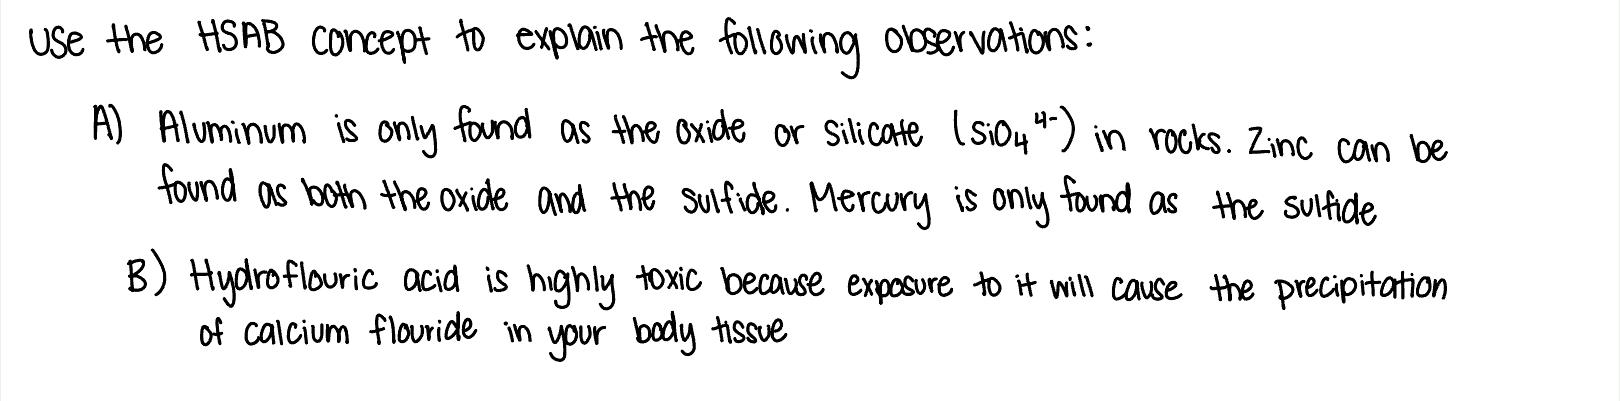 Use the HSAB concept to explain the following observations:
A) Aluminum is only found as the oxide or silicate (SiO₄⁴⁻) in rocks. Zinc can be
found as both the oxide and the sulfide. Mercury is only found as the sulfide
B) Hydroflouric acid is highly toxic because exposure to it will cause the precipitation
of calcium flouride in your body tissue